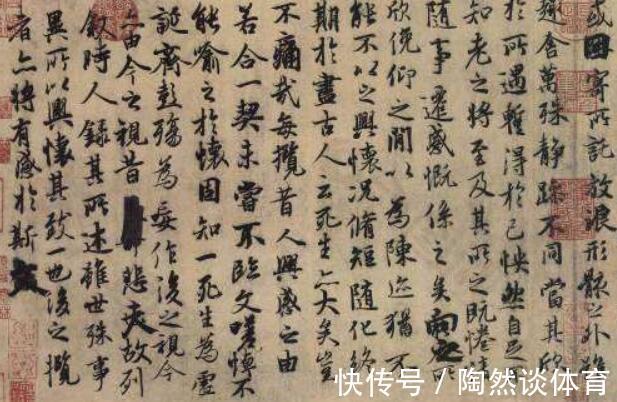 或因寄所託放浪形骸之外雖
趣舍萬殊靜躁不同當其欣
於所遇暫得於己怏然自足不
知老之將至及其所之既惓情
隨事遷感慨係之矣向之所
欣俛仰之間以為陳迹猶不
能不以之興懷況脩短隨化終
期於盡古人云死生亦大矣豈
不痛哉每攬昔人興感之由
若合一契未嘗不臨文嗟悼不
能喻之於懷固知一死生為虛
誕齊彭殤為妄作後之視今
亦由今之視昔悲夫故列
敘時人錄其所述雖世殊事
異所以興懷其致一也後之攬
者亦將有感於斯文
快传号/陶然谈体育